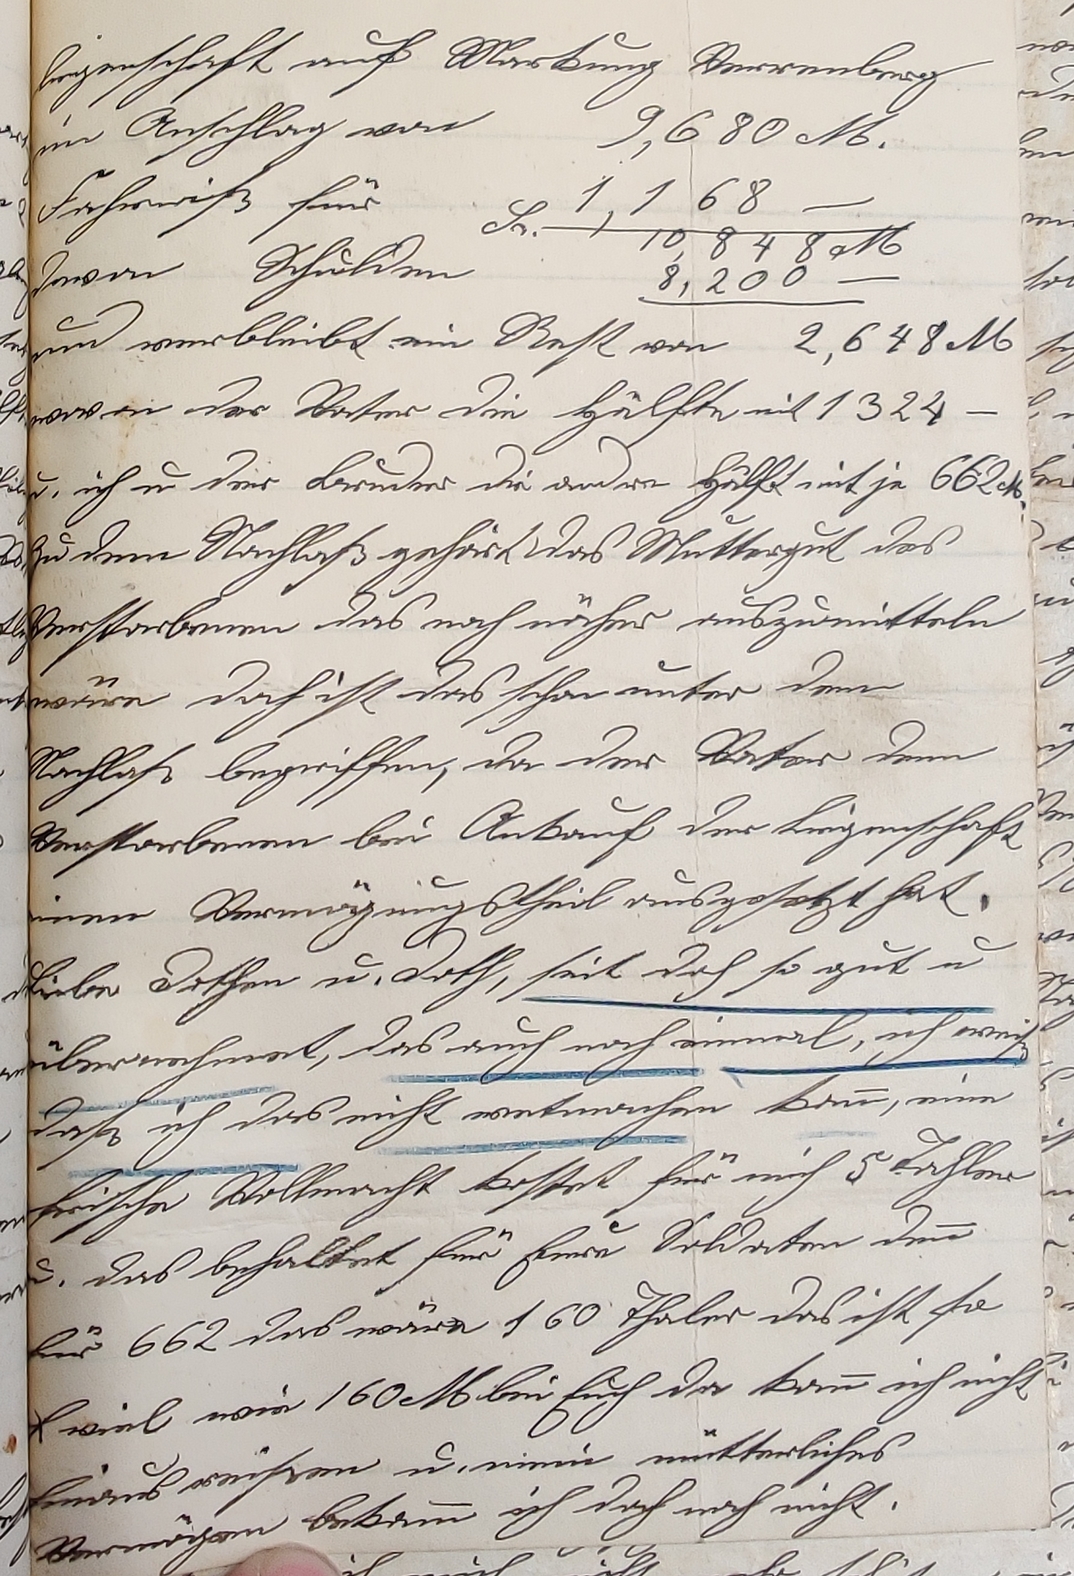 Liegenschaft auf Markung Verrenberg
im Anschlag von 9,680 M.
Fahrniß für 1,168 —
Sa. 10,848 M
davon Schulden 8,200 —
und verbleibt ein Rest von 2,648 M
wovon der Vater die Hälfte mit 1324 —
u. ich u der Bruder die andre Hälft mit je 662 M.
Zu dem Nachlaß gehört das Muttergut des
Verstorbenen das noch näher auszumitteln
wäre doch ist das schon unter dem
Nachlaß begriffen, da der Vater dem
Verstorbenen bei Ankauf der Liegenschaft
einen Vermögungstheil ausgesetzt hat.
Liebe Dothen u. Doth, seit doch so gut u
übernehmet, das auch noch einmal, ich weiß
daß ich das nicht wetmachen kann, eine
frische Vollmacht kostet für mich 5 Tahler
u. das behaltet für Eure Soldaten denn
für 662 das wäre 160 Thaler das ist so
viel wie 160 M bei Euch da kann ich nicht
hinaus reisen u. mein mütterliches
Vermögen bekomm ich doch noch nicht.